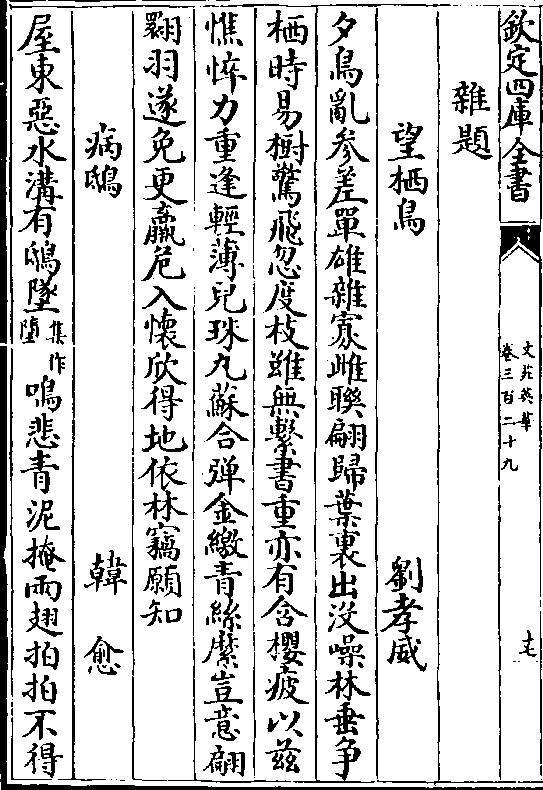 欽定四庫全書
文苑英華
卷三百二十九
雜題
望栖鳥 劉孝威
夕鳥亂參差單雄雜寡雌聨翩歸葉裏出没噪林垂争
栖時易樹驚飛忽度枝雖無繫書重亦有含櫻疲以兹
憔悴力重逢輕薄兒珠丸蘇合弹金繳青絲縻豈意翩
翾羽遂免更羸危入懐欣得地依林竊願知
病鴟 韓愈
屋東惡水溝有鴟墜集作墮鳴悲青泥掩兩翅拍拍不得